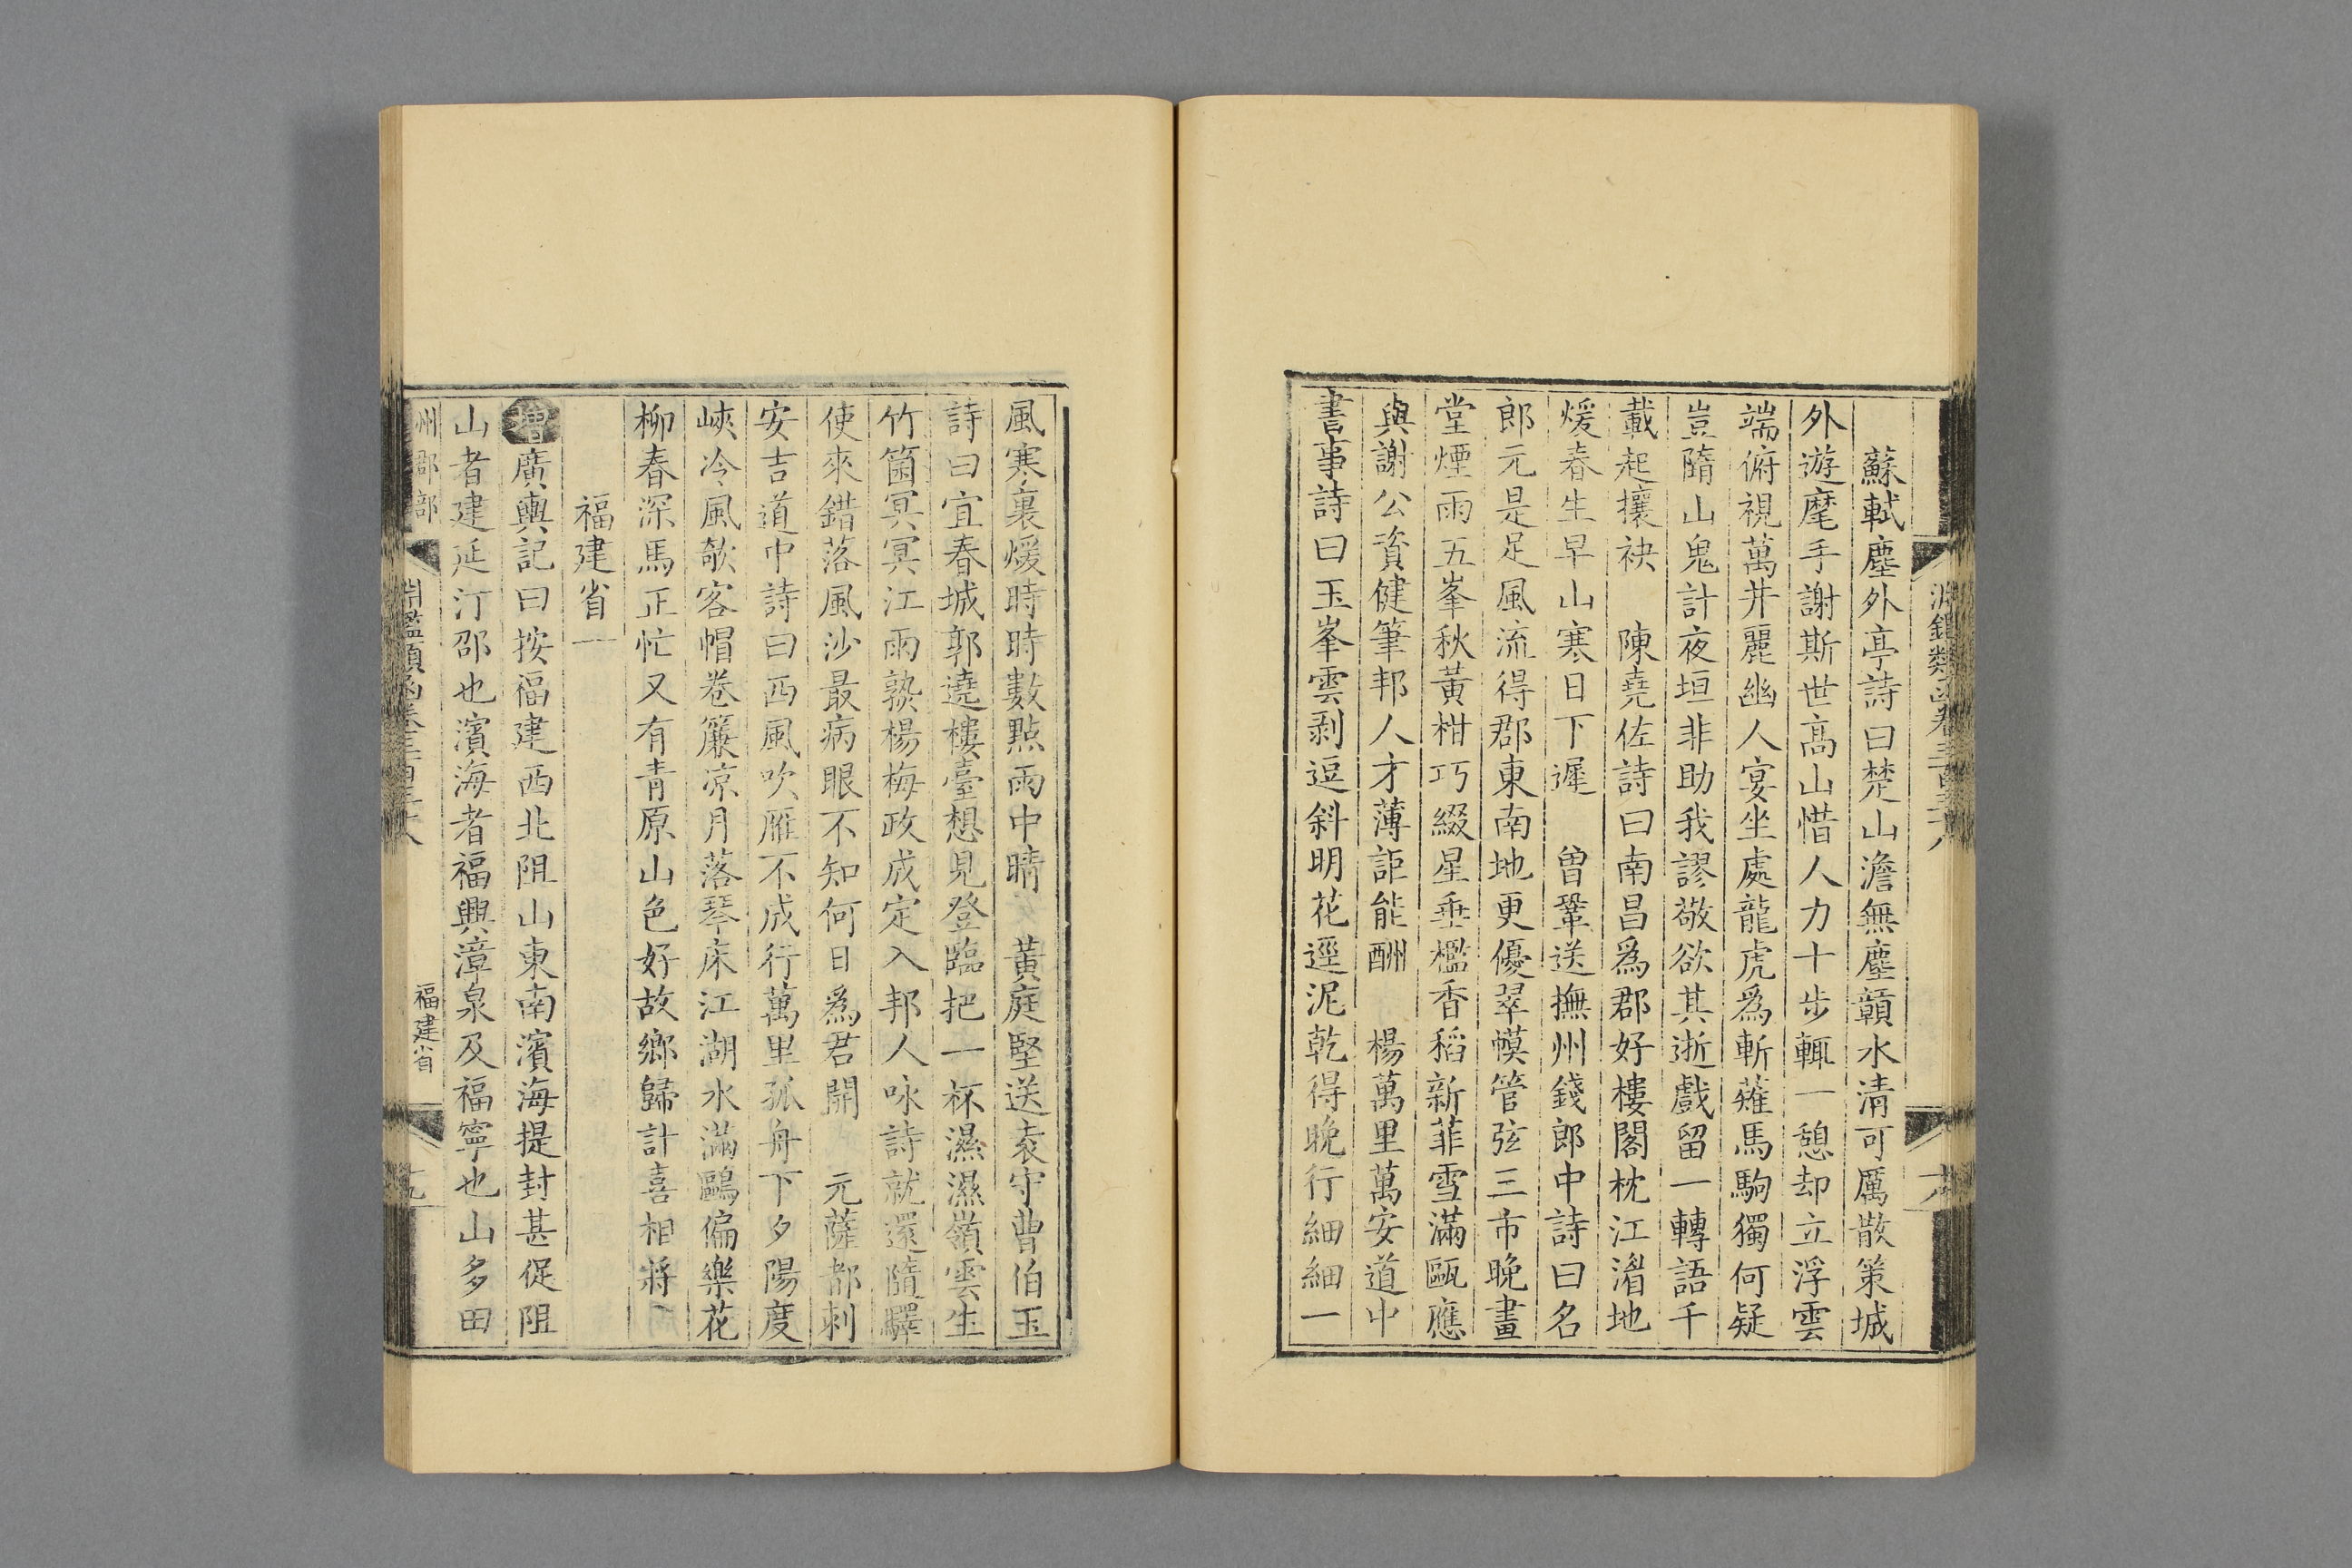 蘇軾塵外亭詩曰楚山澹無塵贑水清可厲散策城
外遊麾手謝斯世高山惜人力十步輙一憩却立浮雲
端俯視萬井麗幽人宴坐處龍虎爲斬薙馬駒獨何疑
豈隨山鬼計夜垣非助我謬敬欲其逝戲留一轉語千
載起攘袂　陳堯佐詩曰南昌爲郡好樓閣枕江渚地
煖春生早山寒日下遲　曾鞏送撫州錢郎中詩曰名
郎元是足風流得郡東南地更優翠幙管弦三市晚畫
堂煙雨五峯秋黃柑巧綴星垂檻香稻新菲雪滿甌應
與謝公資健筆邦人才薄詎能酬　楊萬里萬安道中
書事詩曰玉峯雲剥逗斜明花逕泥乾得晚行細細一
風寒裏煖時時數點雨中晴　黃庭堅送袁守曹伯玉
詩曰宜春城郭遶樓臺想見登臨把一杯濕濕嶺雲生
竹箘冥冥江雨熟楊梅政成定入邦人咏詩就還隨驛
使來錯落風沙最病眼不知何日爲君開　元薩都剌
安吉道中詩曰西風吹雁不成行萬里孤舟下夕陽度
峽冷風欹客帽卷簾凉月落琴床江湖水滿鷗偏樂花
柳春深馬正忙又有青原山色好故鄉歸計喜相將
福建省一
增廣輿記曰按福建西北阻山東南濱海提封甚促阻
山者建延汀邵也濱海者福興漳泉及福寧也山多田
州郡部
淵鑑類函卷三百三十八
福建省